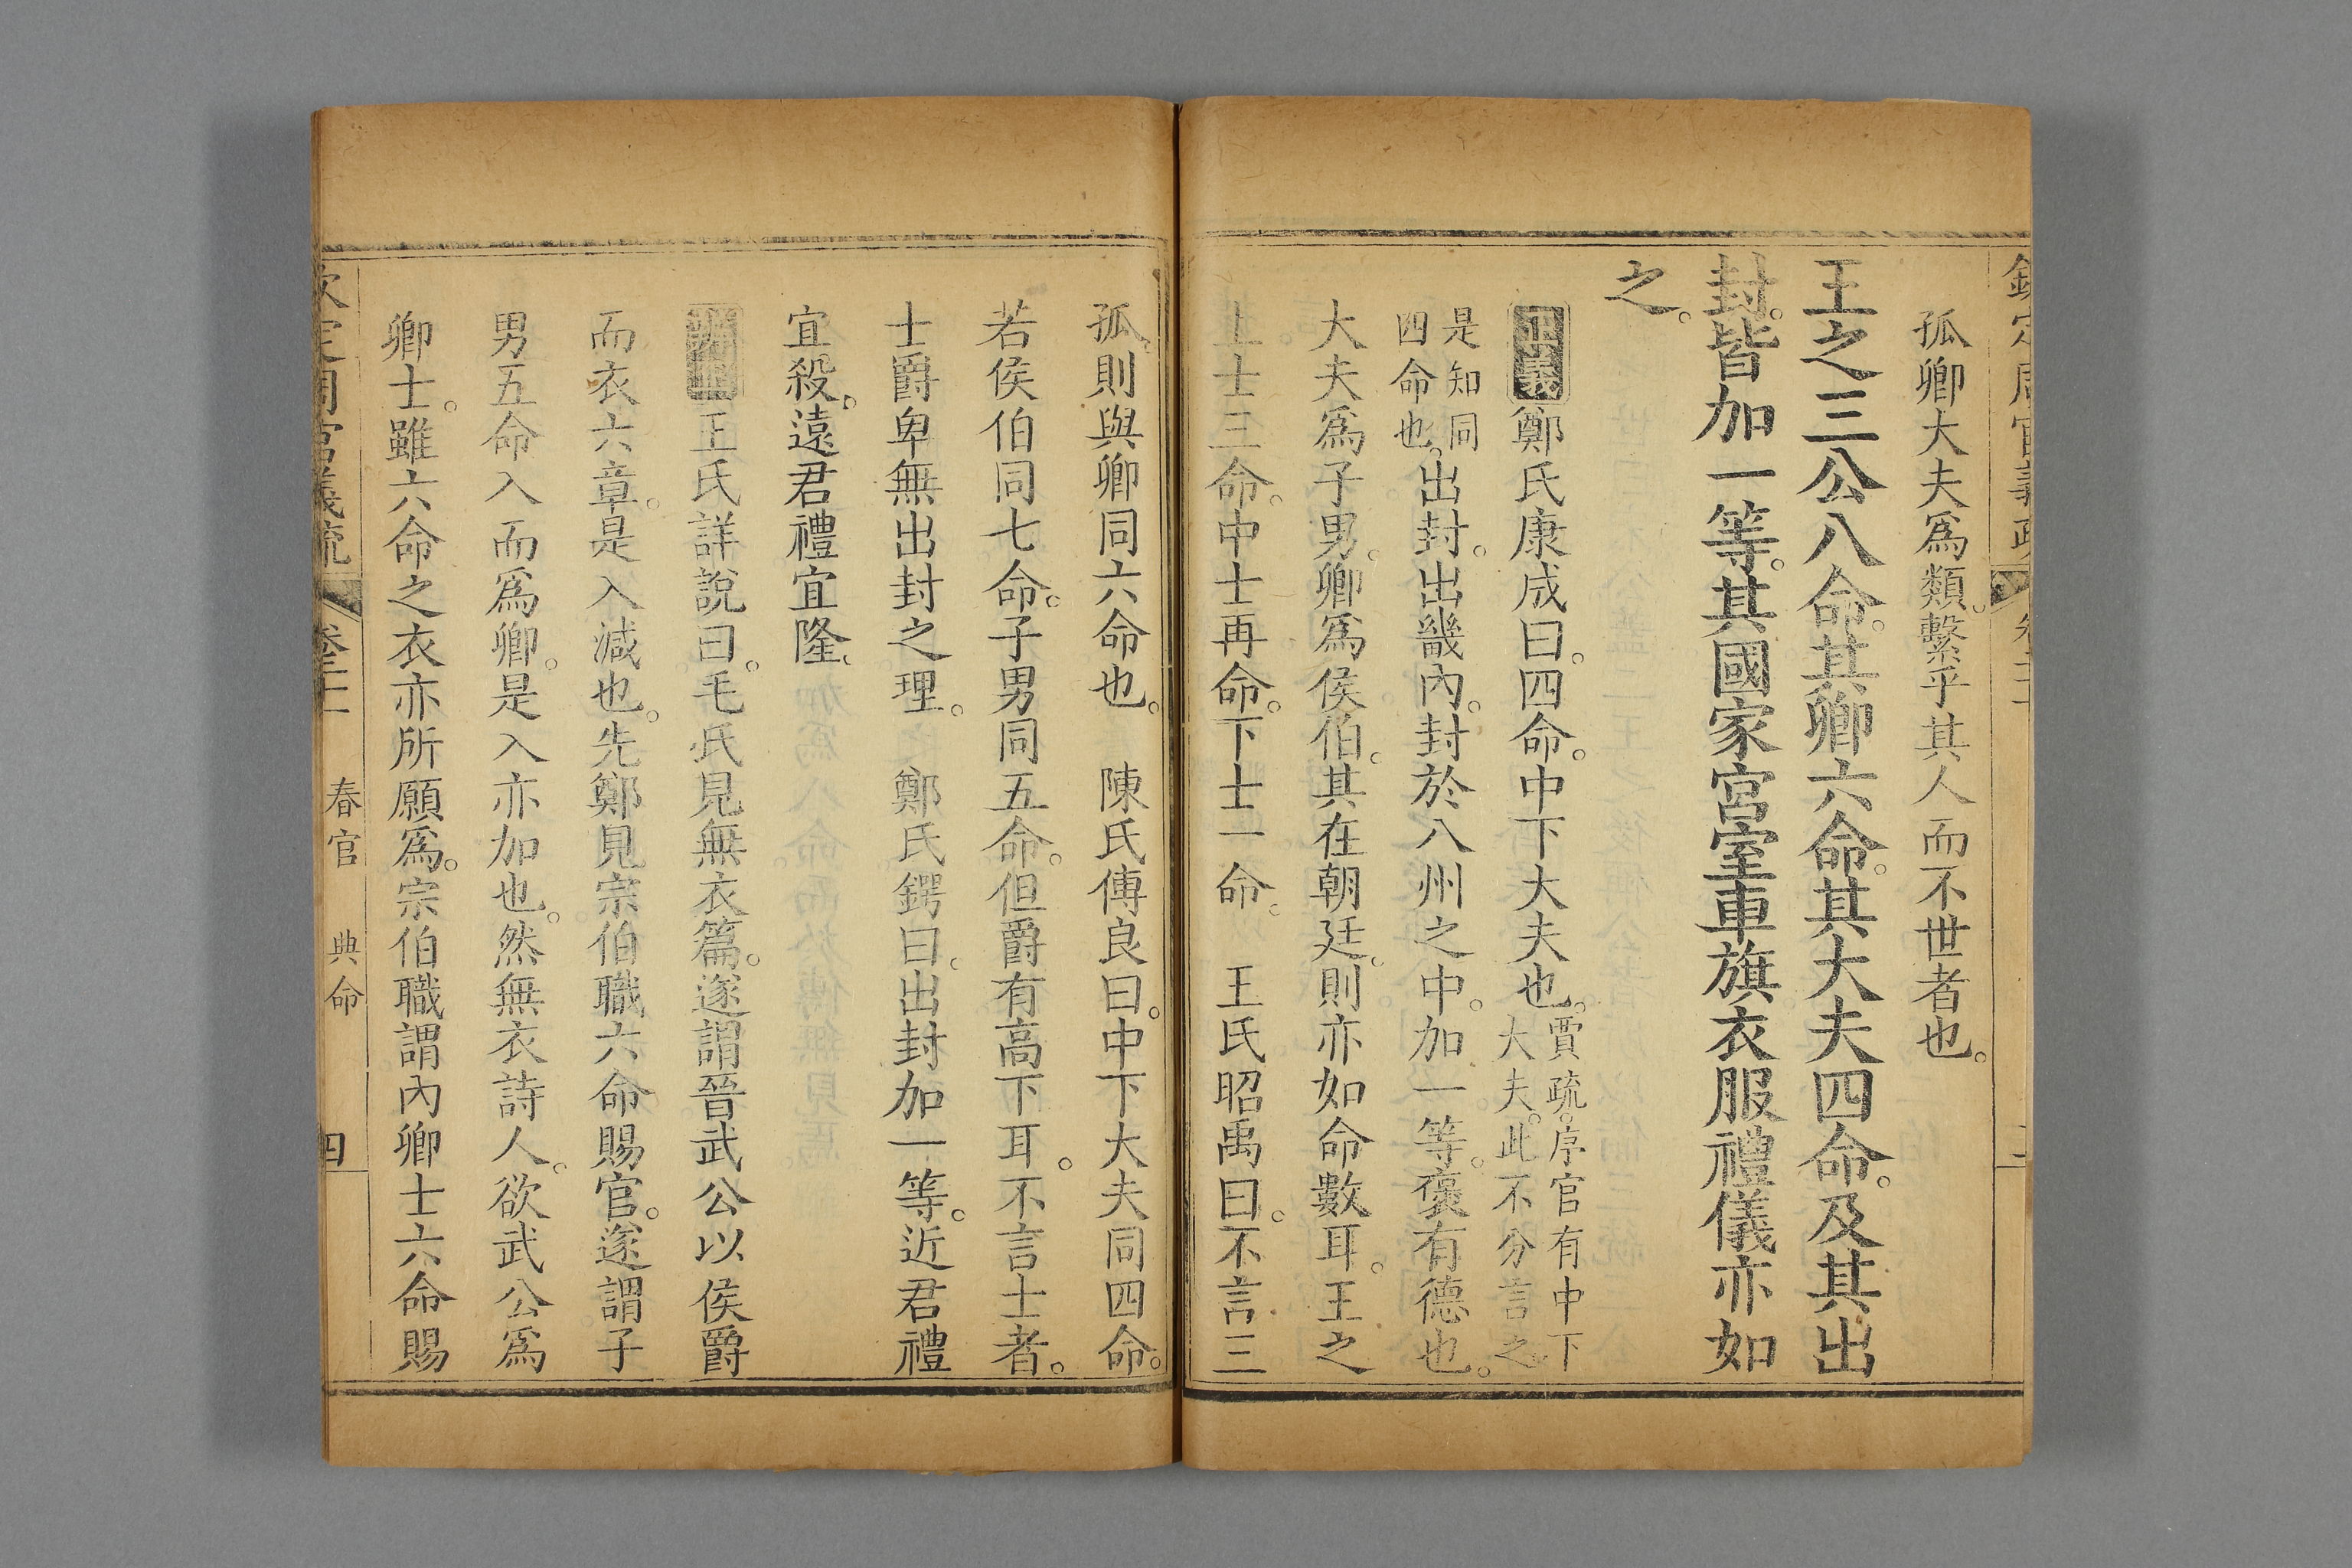 孤卿大夫爲類。繫乎其人而不世者也。
王之三公八命。其卿六命。其大夫四命。及其出
封。皆加一等。其國家宮室車旗衣服禮儀亦如
之。
正義鄭氏康成曰。四命。中下大夫也。賈疏。序官有中下大夫。此不分言之
是知同四命也。出封。出畿內。封於八州之中。加一等。襃有德也。
大夫爲子男。卿爲侯伯。其在朝廷。則亦如命數耳。王之
上士三命。中士再命。下士一命。 王氏昭禹曰。不言三
孤。則與卿同六命也。 陳氏傅良曰。中下大夫同四命。
若侯伯同七命。子男同五命。但爵有高下耳。不言士者。
士爵卑無出封之理。 鄭氏鍔曰。出封加一等。近君禮
宜殺。遠君禮宜隆。
王氏詳說曰。毛氏見無衣篇。遂謂晉武公以侯爵
而衣六章。是入減也。先鄭見宗伯職六命賜官。遂謂子
男五命入而爲卿。是入亦加也。然無衣詩人。欲武公爲
卿士。雖六命之衣亦所願爲。宗伯職謂內卿士六命賜
欽定周官義疏 卷二十 春官 典命 四